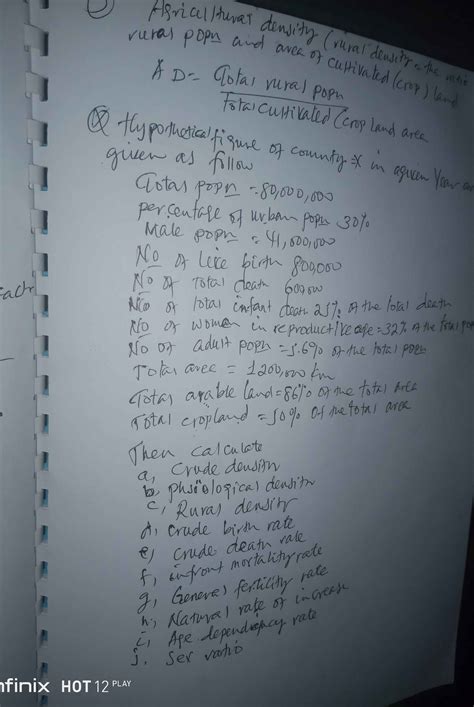 Agricultural density (rural density = the ratio
rural popn and area of cultivated (crop) land
A D = Total rural popn
Total cultivated (crop land area
Hypothetical figure of country =X in a given Year are
given as follow
Total popn = 80,000,000
percentage of urban popn 30%
Male popn = 41,000,000
No of live birth 800,000
No of Total death 600,000
No of total infant death 25% of the total death
No of women in reproductive age = 32% of the total popn
No of adult popn = 5.6% of the total popn
Total area = 1200,000 km
Total arable land = 86% of the total area
Total cropland = 50% of the total area
Then calculate
a, crude density
b, phsiological density
c, Rural density
d, crude birth rate
e, crude death rate
f, infront mortality rate
g, General fertility rate
h, Natural rate of increase
i, Age dependnecy rate
j. Sex ratio
factr
nfinix HOT 12 PLAY